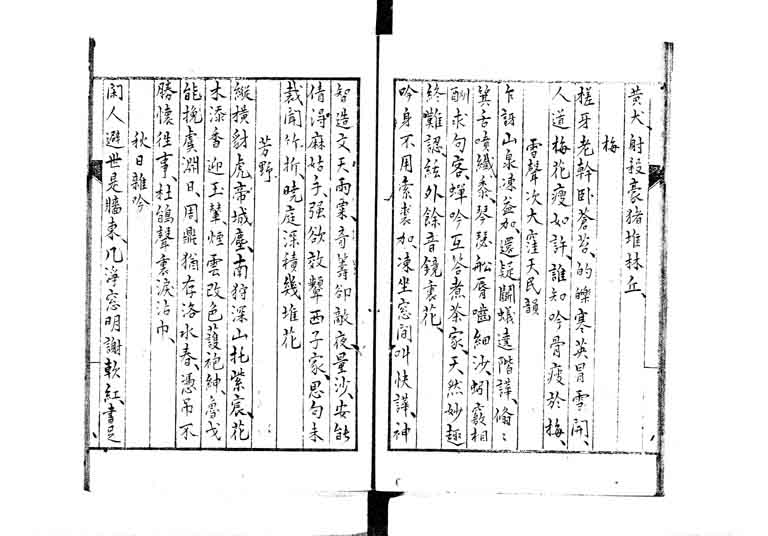 黄犬、射殺豪猪堆林丘、
梅
槎牙老幹卧蒼苔、的皪寒英冒雪開、
人道梅花瘦如許、誰知吟骨瘦於梅、
雪聲次大窪天民韻
乍訝山泉凍益加、還疑鬪蟻遶階譁、翛〻
箕舌噴纖黍、琴瑟船脣嚙細沙、蚓竅相
酬求句客、蟬吟互答煮茶家、天然妙趣
終難認、絃外餘音鏡裏花、
吟身不用索裘加、凍坐窓間叫快譁、神
智造文天雨粟、奇籌卻敵夜量沙、安能
倩得麻姑手、强欲效顰西子家、思句未
裁聞竹折、曉庭深積幾堆花
芳野
縱橫豺虎帝城塵、南狩深山托紫宸、花
木添香迎玉輦、煙雲改色護袍紳、魯戈
能挽虞淵日、周鼎猶存洛水春、憑弔不
勝懷往事、杜鵑聲裏淚沾巾、
秋日雜吟
閑人避世是牆東、几淨窓明謝軟紅、書足